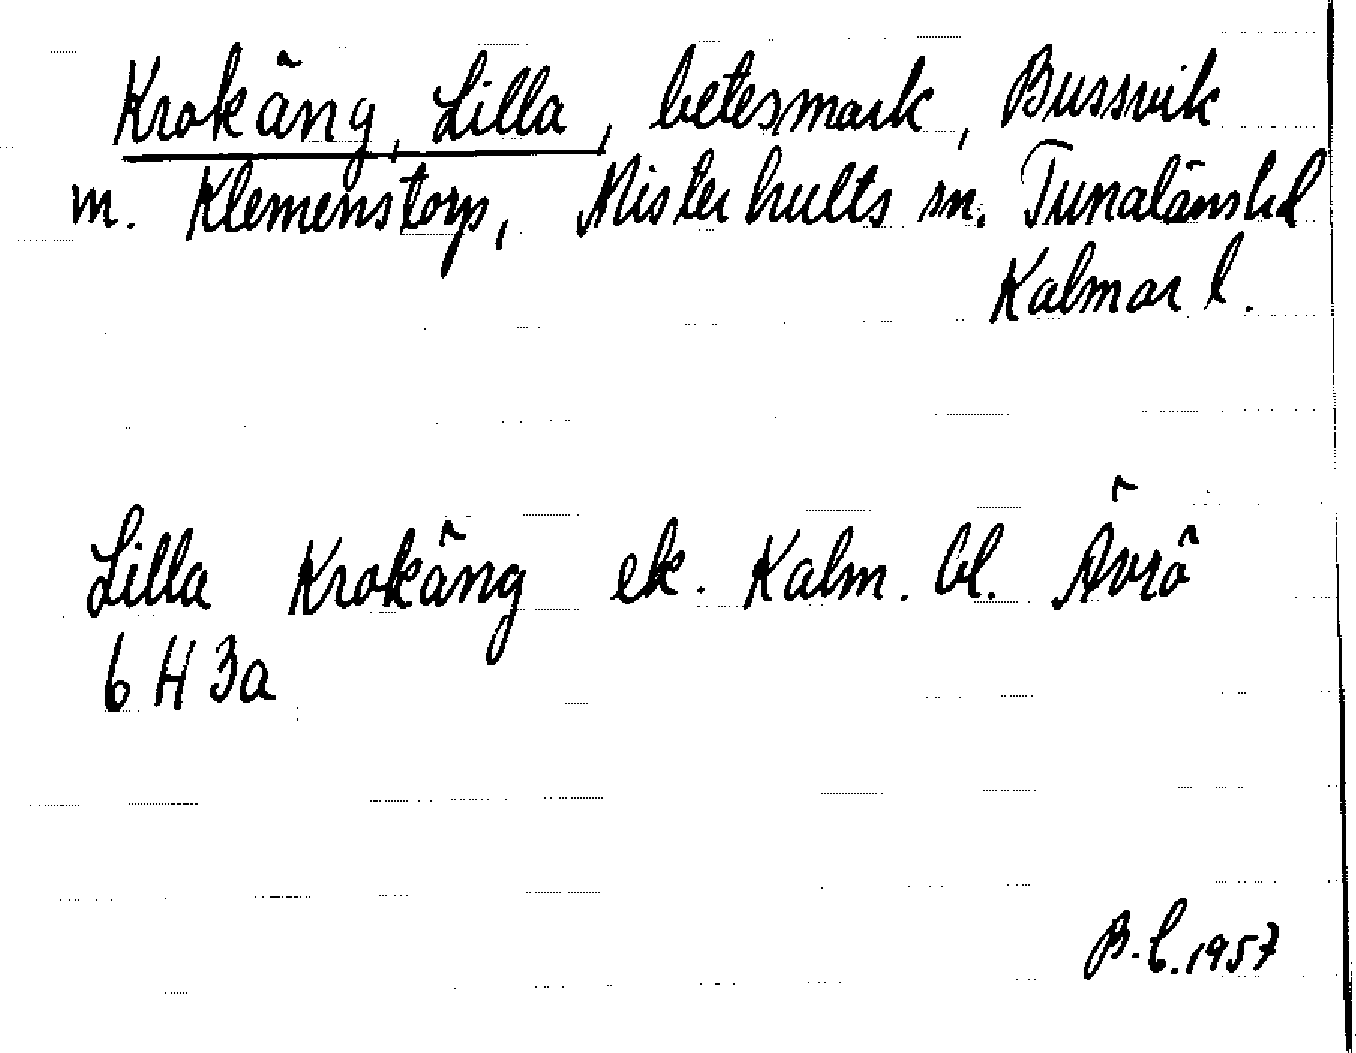 Krokäng, Lilla, betesmark, Bussvik
m. Klemenstorp, Misterhults sn. Tunalänshd
Kalmar l.
Lilla Krokäng ek. Kalm. bl. Ävrö
6 H 3a
B.L. 1957